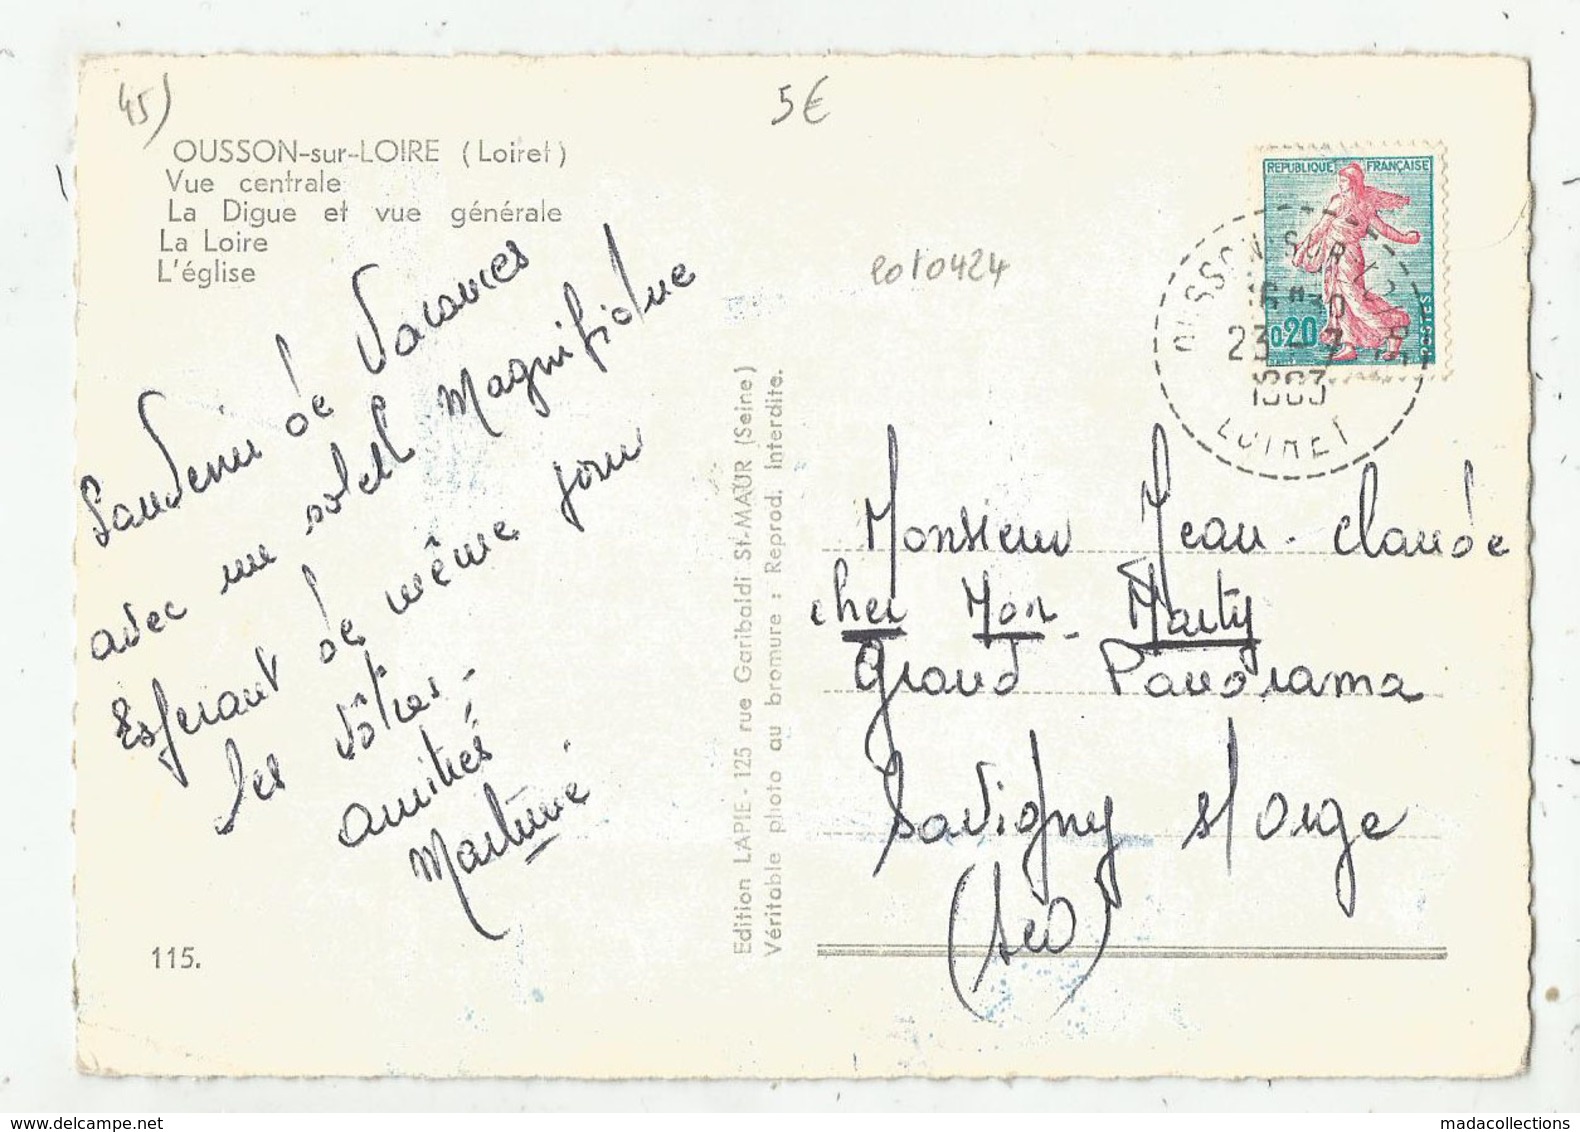 45)
5€
OUSSON-sur-LOIRE (Loiret)
Vue centrale
La Digue et vue générale
La Loire
L'église
2010424
REPUBLIQUE FRANÇAISE
0,20
POSTES
OUSSON-SUR-LOIRE
16H30
23-7
1963
LOIRET
Souvenir de Vacances
avec un soleil Magnifique
Espérant de même pour
les vôtres.
amitiés
Martine
Edition LAPIE - 125 rue Garibaldi St-MAUR (Seine)
Véritable photo au bromure : Reprod. Interdite.
Monsieur Jean-Claude
chez Mon. Marty
Grand Panorama
Savigny s/ Orge
(S&O)
115.
www.delcampe.net
madacollections